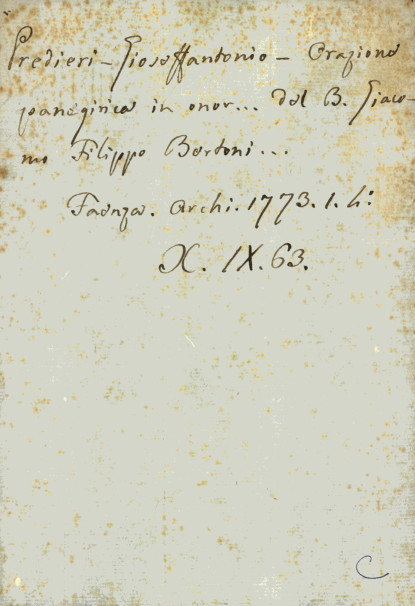 Predieri - Gioseffantonio - Orazione
panegirica in onor... del B. Giaco-
mo Filippo Bertoni...
Faenza. Archi. 1773. 1. h:
X. IX. 63.
C